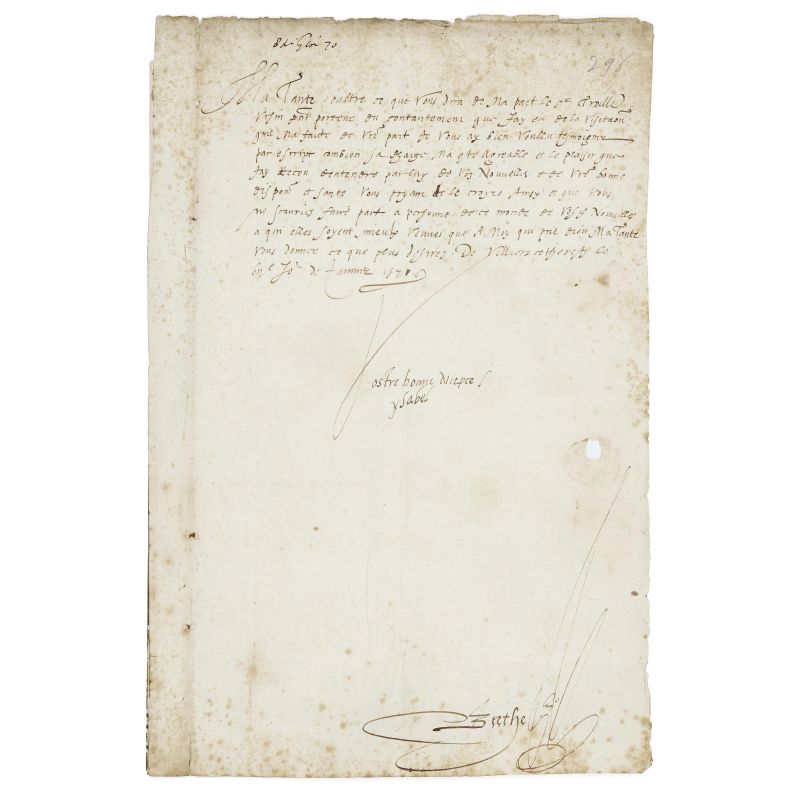 296
Ma Tante oultre ce que vous dira de ma part le Sr Troille
present porteur du contantement que Jay eu de la visitaon
que ma faite de vre part Je vous ay bien voullu temoigner
par escript combien sa charge ma este agreable et le plaisir que
Jay Receu dentendre par luy de voz Nouvelles et de vre bonne
dispon et sante vous pryant de le croyre Ainsy et que vous
ne scauriez faire part a personne de ce monde de voz Nouvelles
a qui elles soyent mieulx venues que A Moy qui prie dieu Ma Tante
vous donner ce que plus desirez De Villiers costherestz le
Jor de 157
Vostre bonne Niepce
ysabel
Berthe